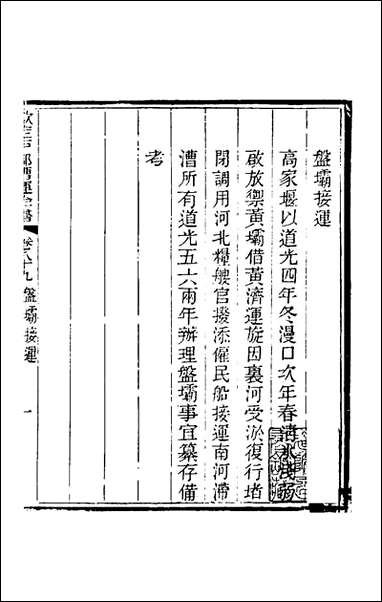 盤壩接運
高家堰以道光四年冬漫口次年春清水淺弱
啟放禦黃壩借黃濟運旋因裏河受淤復行堵
閉調用河北糧艘官撥添僱民船接運南河滯
漕所有道光五六兩年辦理盤壩事宜纂存備
考
欽定戶部漕運全書
卷八十九
盤壩接運
一